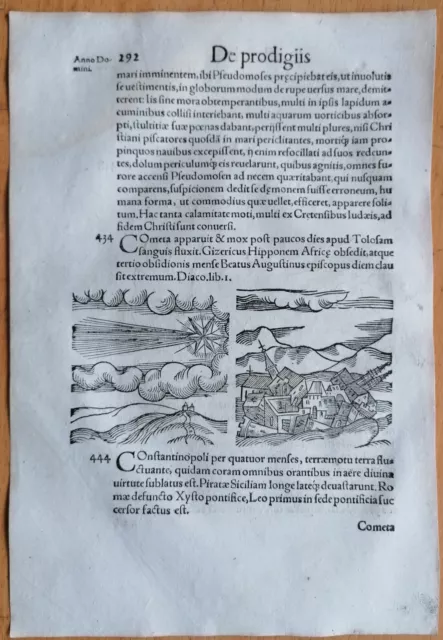 Anno Do-
mini.
292
De prodigiis
mari imminentem, ibi Pseudomoses precipiebat eis, ut inuolutis
se uestimentis, in globorum modum de rupe uersus mare, demit-
terent: Iis sine mora obtemperantibus, multi in ipsis lapidum a-
cuminibus collisi interibant, multi aquarum uorticibus absor-
pti, stultitiæ suæ pœnas dabant, perissent multi plures, nisi Chri
stiani piscatores quosdã in mari periclitantes, mortiq; iam pro-
pinquos nauibus excepissent, ij enim refocillati ad suos redeun-
tes, dolum periculumq; eis reuelarunt, quibus agnitis, omnes fu-
rore accensi Pseudomosen ad necem quæritabant, qui nusquam
comparens, suspicionem dedit se dęmonem fuisse erroneum, hu
mana forma, ut commodius quæ uellet, efficeret, apparere soli-
tum, Hac tanta calamitate moti, multi ex Cretensibus Iudæis, ad
fidem Christi sunt conuersi.
434 COmeta apparuit & mox post paucos dies apud Tolosam
sanguis fluxit. Gizericus Hipponem Africę obsedit, atque
tertio obsidionis mense Beatus Augustinus episcopus diem clau
sit extremum. Diaco. lib. 1.
444 COnstantinopoli per quatuor menses, terræmotu terra flu
ctuante, quidam coram omnibus orantibus in aere diuina
uirtute sublatus est. Piratæ Siciliam longe lateq; deuastarunt. Ro
mæ defuncto Xysto pontifice, Leo primus in sede pontificia suc
cessor factus est.
Cometa